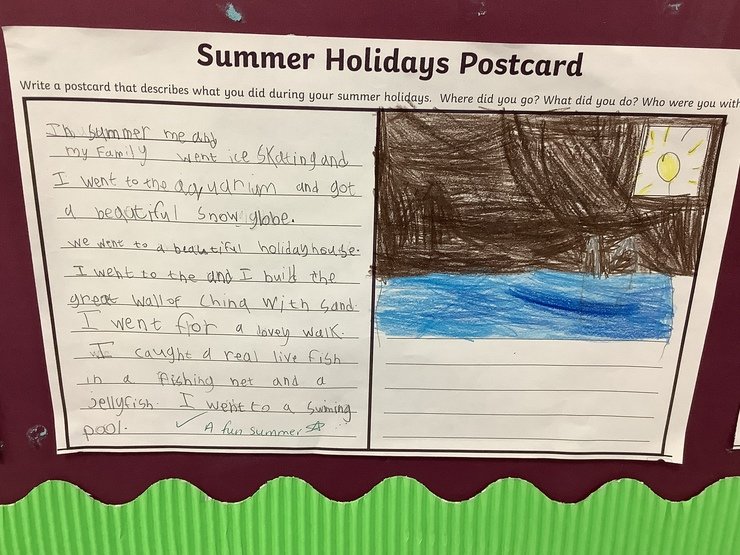 Summer Holidays Postcard
Write a postcard that describes what you did during your summer holidays. Where did you go? What did you do? Who were you with
In summer me and
my Family went ice skating and
I went to the aqyuarium and got
a beautiful snow globe.
we went to a beautiful holiday house.
I went to the and I built the
great wall of China with sand.
I went for a lovey walk.
I caught a real live fish
in a fishing net and a
Jellyfish. I went to a swiming
pool. ✓ A fun summer ☆